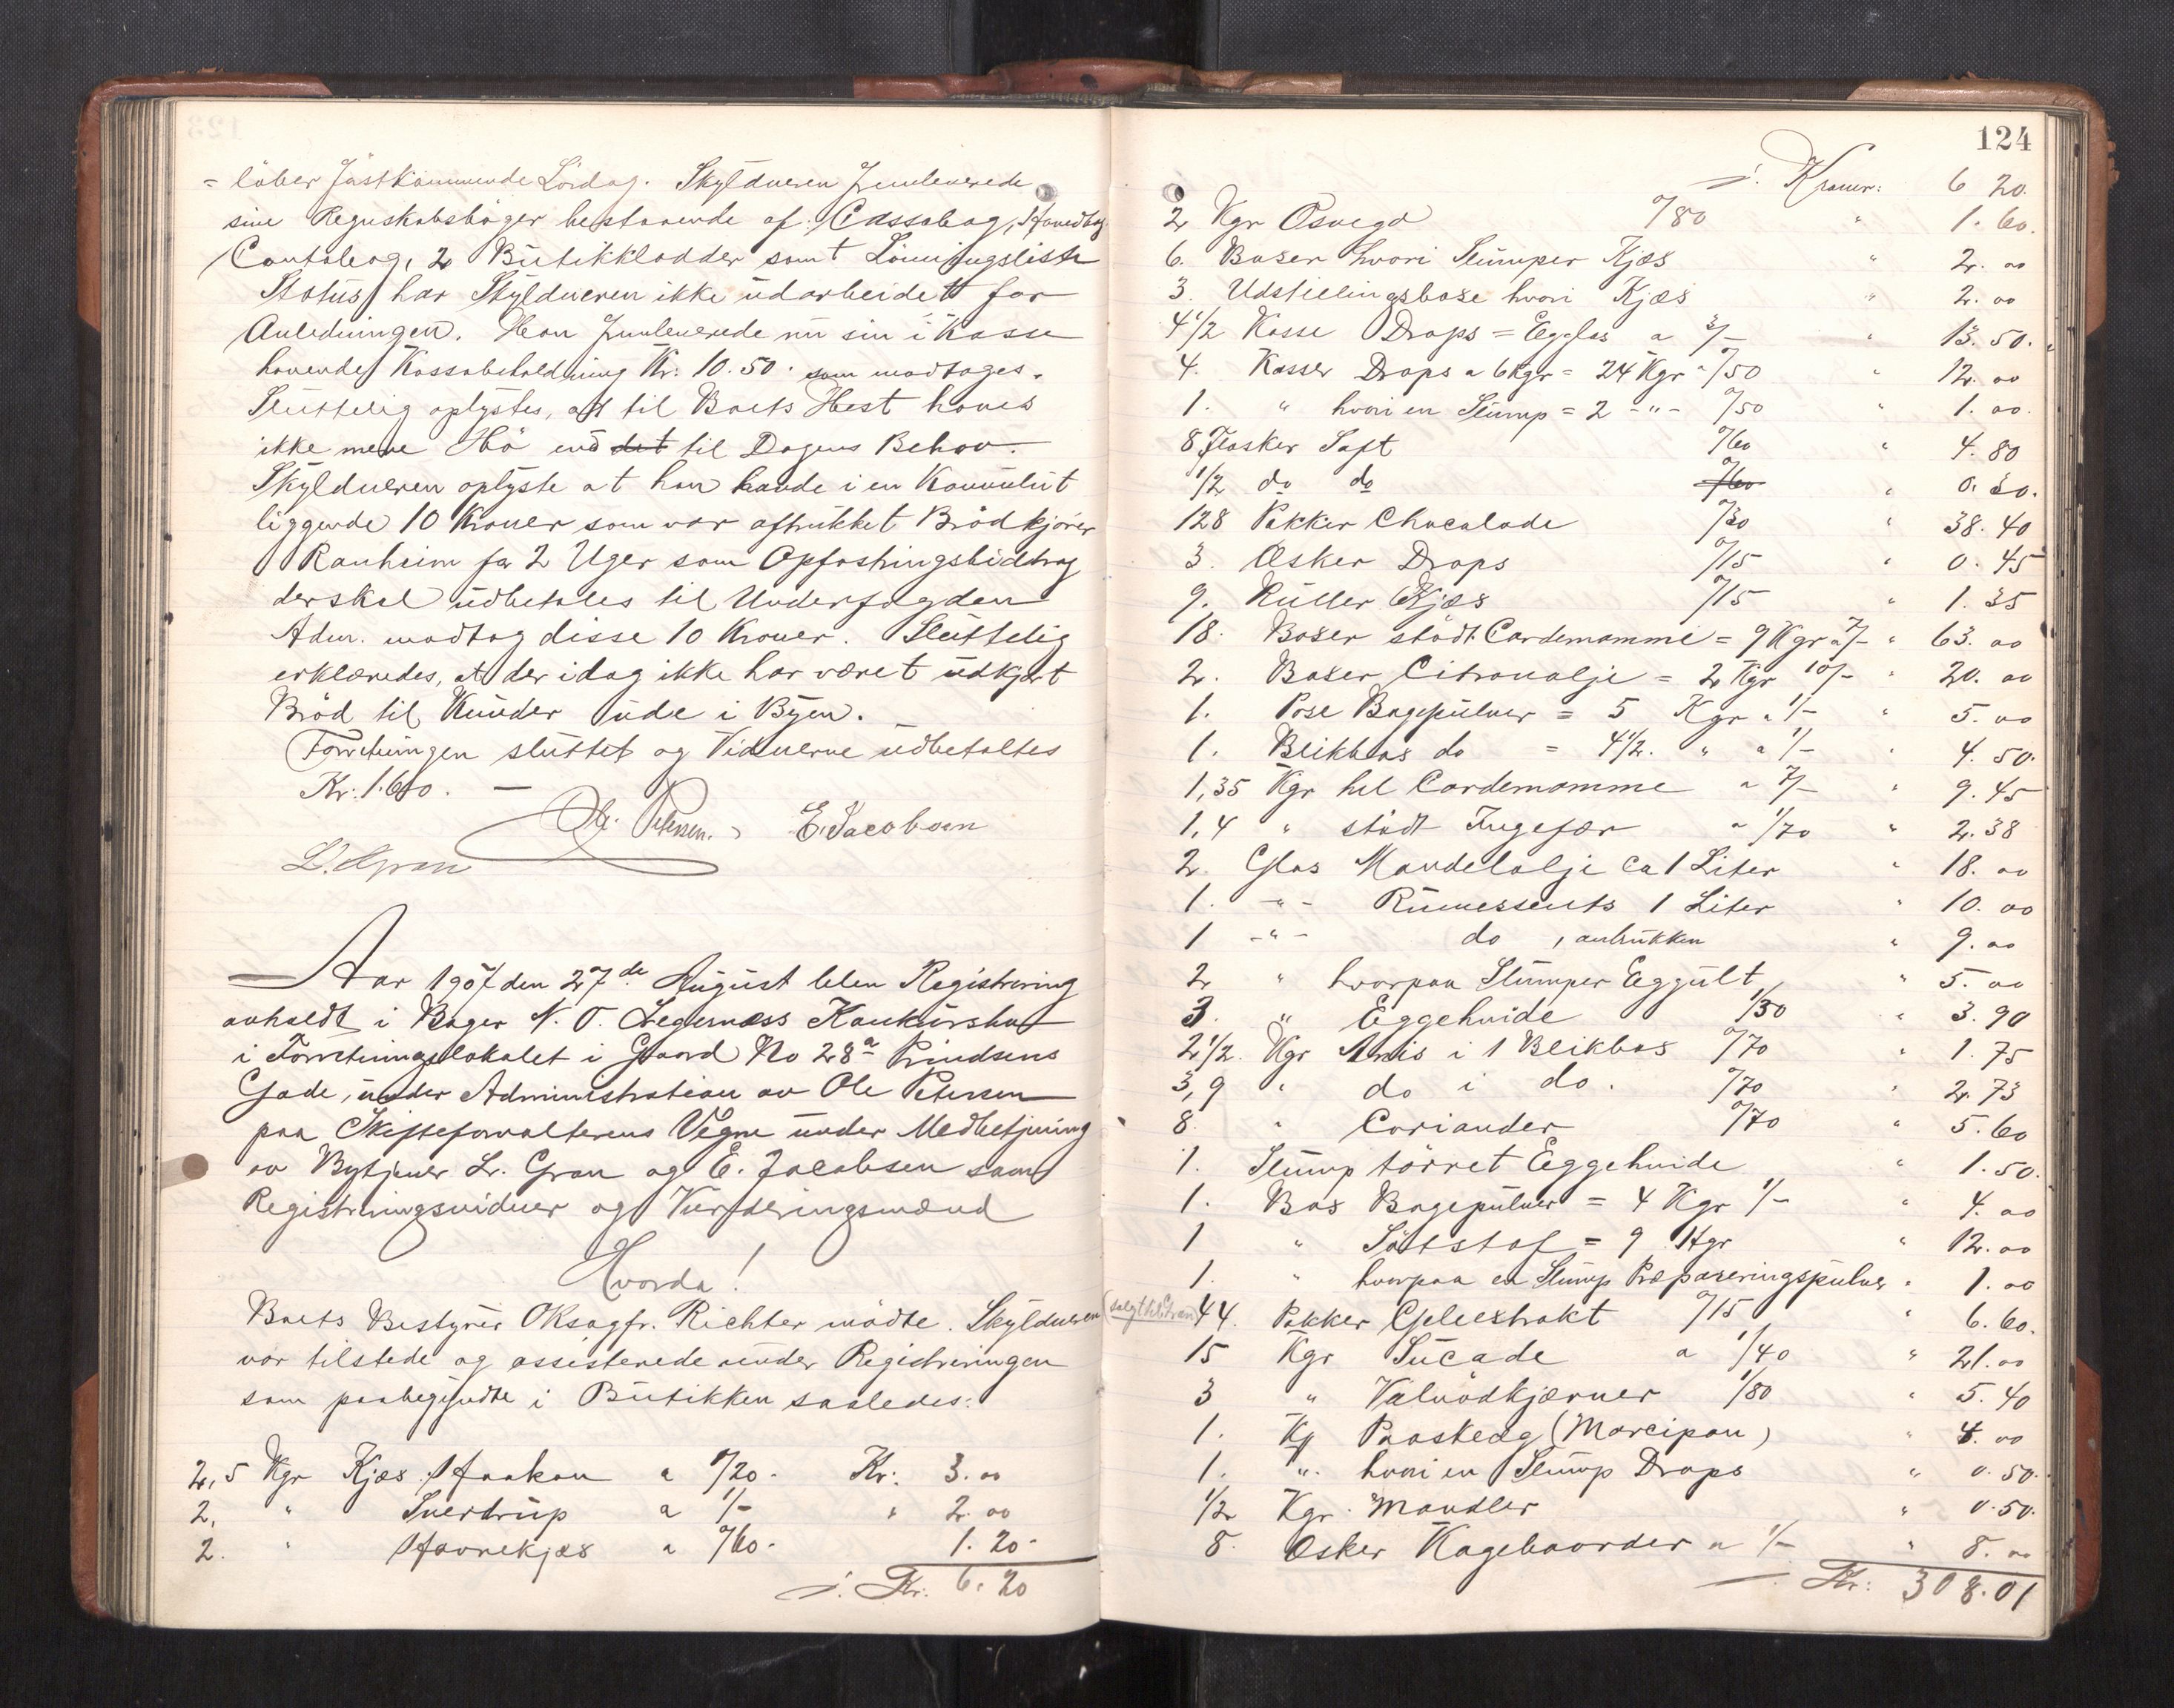 = löber förstkommende Lördag. Skyldneren fremleverede
sine Regnskabsböger bestaaende af: Cassabog, Hovedbog
Contobog, 2 Butikkladder samt Lönningsliste
Status har Skyldneren ikke udarbeidet for
Anledningen. Han fremleverede nu sin i Kasse
havende Kassabeholdning Kr: 10.50. som modtoges.
Sluttelig oplystes, at til Boets Hest haves
ikke mere Hö end det til Dagens Behov.
Skyldneren oplyste at han havde i en Konvolut
liggende 10 Kroner som var aftrukket Brödkjörer
Ranheim for 2 Uger som Opfostringsbidrag
der skal udbetales til Underfogden
Adm. modtog disse 10 Kroner. Sluttelig
erklæredes, at der idag ikke har været udkjört
Bröd til Kunder ude i Byen.
Forretningen sluttet og Vidnerne udbetaltes
Kr: 1.60. —
Ole Petersen. E. Jacobsen
L. Gran
Aar 1907 den 27de August blev Registrering
avholdt i Bager N. O. Konkursbo
i Forretningslokalet i Gaard No 28a Prindsens
Gade, under Administration av Ole Petersen
paa Skifteforvalterens Vegne under Medbetjening
av Bytjener Lr. Gran og E. Jacobsen som
Registreringsvidner og Vurderingsmænd
Hvorda!
Boets Bestyrer OKsagfr. Richter mödte. Skyldneren
var tilstede og assisterede under Registreringen
som paabegyndte i Butikken saaledes:
2,5 Kgr Kjæs Haakon a 1/20. Kr: 3.00
2. " Sverdrup a 1/- " 2.00
2. " Havrekjæs a 0/60. 1.20.
/. Kr. 6.20
124
/. Kroner: 6 20.
2 Kgr Osvego 0/80 " 1.60.
6. Boser hvori Slumper Kjæs " 2.00
3. Udstillingsbose hvori Kjæs " 2.00
4 1/2 Kasse Drops = Egglas a 3/- " 13.50.
4. Kasser Drops a 6 Kgr = 24 Kgr a 0/50 " 12.00
1. " hvori en Slump = 2 -"- 0/50 " 1.00.
8 Flasker Saft 0/60 " 4.80
1/2 do do 0/60 " 0.30.
128 Pakker Chocolade 0/30 " 38.40
3. Æsker Drops 0/15 " 0.45
9. Ruller Kjæs 0/15 " 1.35
18. Boser stödt Cardemomme = 9 Kgr a 7/- " 63.00
2. Boser Citronolje = 2 Kgr 10/- " 20.00
1. Pose Bagepulver = 5 Kgr a 1/- " 5.00
1. Blikbos do = 4 1/2. " a 1/- " 4.50.
1,35 Kgr hel Cardemomme a 7/- " 9.45
1,4 " stödt Ingefær a 1/70 " 2.38
2. Glas Mandelolje ca 1 Liter " 18.00
1. -"- Rumessents 1 Liter " 10.00
1 -"- do , anbrukken " 9.00
2 " hvorpaa Slumper Eggult " 5.00
3. " Eggehvide 1/30 " 3.90
2 1/2. Kgr Anis i 1 Blikbos 0/70 " 1.75
3,9 " do i do. 0/70 " 2.73
8. " Coriander 0/70 " 5.60
1. Slump törret Eggehvide " 1.50.
1. Bos Bagepulver = 4 Kgr 1/- " 4.00
1 " Sötstof = 9 Hgr " 12.00
1. " hvorpaa en Slump Præpareringspulver " 1.00
44. Pakker Geleextrakt 0/15 " 6.60.
15 Kgr Sucade a 1/40 " 21.00
3 " Valnödkjærner 1/80 " 5.40
1. Kg Paaskeæg (Marcipan) " 4.00
1. " hvori en Slump Drops " 0.50.
1/2 Kgr. Mandler " 0.50.
8. Æsker Kagebaarder a 1/- " 8.00
/. Kr: 308.01